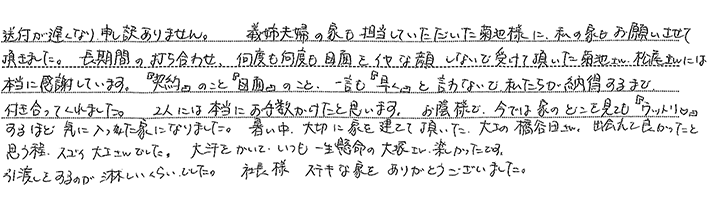 送付が遅くなり申し訳ありません。 義姉夫婦の家も担当していただいた菊池様に、私の家もお願いさせて
頂きました。長期間の打ち合わせ、何度も何度も図面をイヤな顔しないで受けて頂いた菊池さん、松尾さんには
本当に感謝しています。『契約』のこと『図面』のこと、一言も『早く』と言わないで、私たちが納得するまで
付き合ってくれました。 2人には本当にお手数かけたと思います。 お陰様で、今では家のどこを見ても『ウットリ』
するほど気に入った家になりました。暑い中、大切に家を建てて頂いた、大工の橋谷田さん、出会えて良かったと
思う程、スゴイ大工さんでした。 大汗をかいて、いつも一生懸命の大塚さん、楽しかったです。
引渡しをするのが淋しいくらいでした。 社長様 ステキな家をありがとうございました。